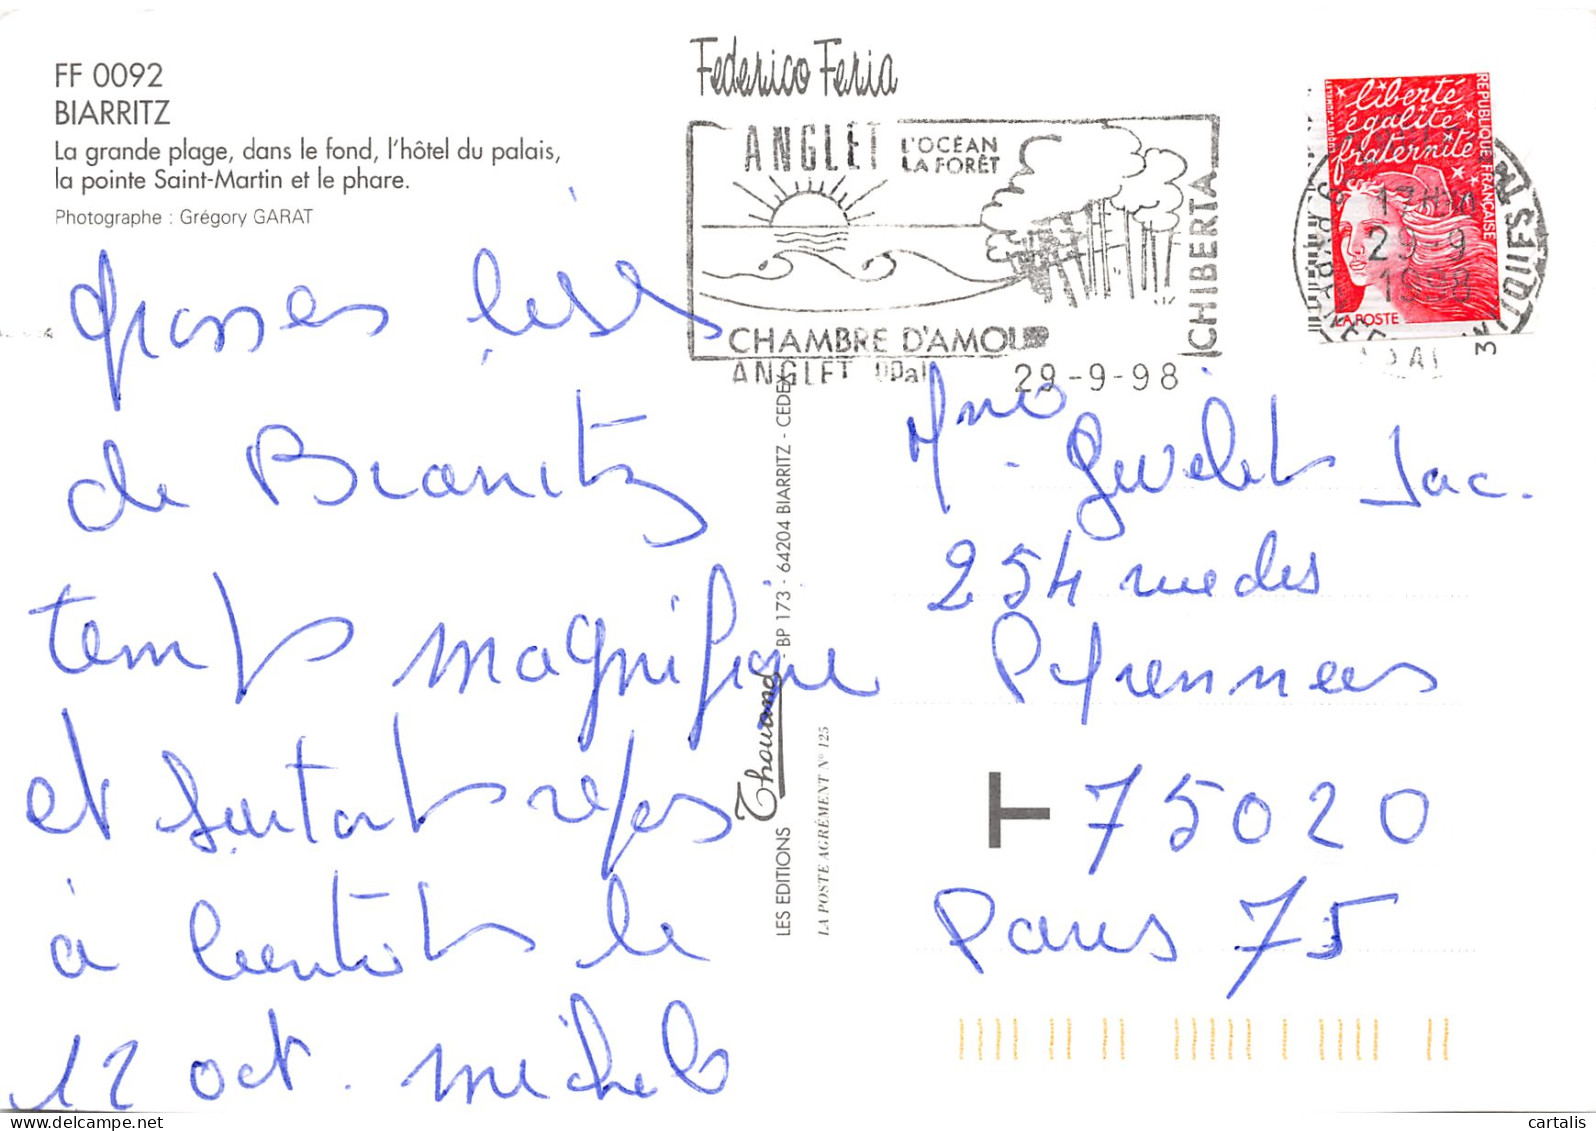 FF 0092
BIARRITZ
La grande plage, dans le fond, l'hôtel du palais,
la pointe Saint-Martin et le phare.
Photographe : Grégory GARAT
grosses bises
de Biarritz
temps magnifique
et surtout repos
à bientôt le
12 oct. michele
Federico Feria
ANGLET L'OCÉAN
LA FORÊT
CHIBERTA
CHAMBRE D'AMOUR
ANGLET ppal
29-9-98
liberté
égalité
fraternité
REPUBLIQUE FRANÇAISE
LA POSTE
29-9
1998
LES EDITIONS Thouand - BP 173 - 64204 BIARRITZ - CEDEX
LA POSTE AGRÉMENT N° 125
Mme Jac.
254 rue des
Pyrennees
T 75020
Paris 75
cartalis